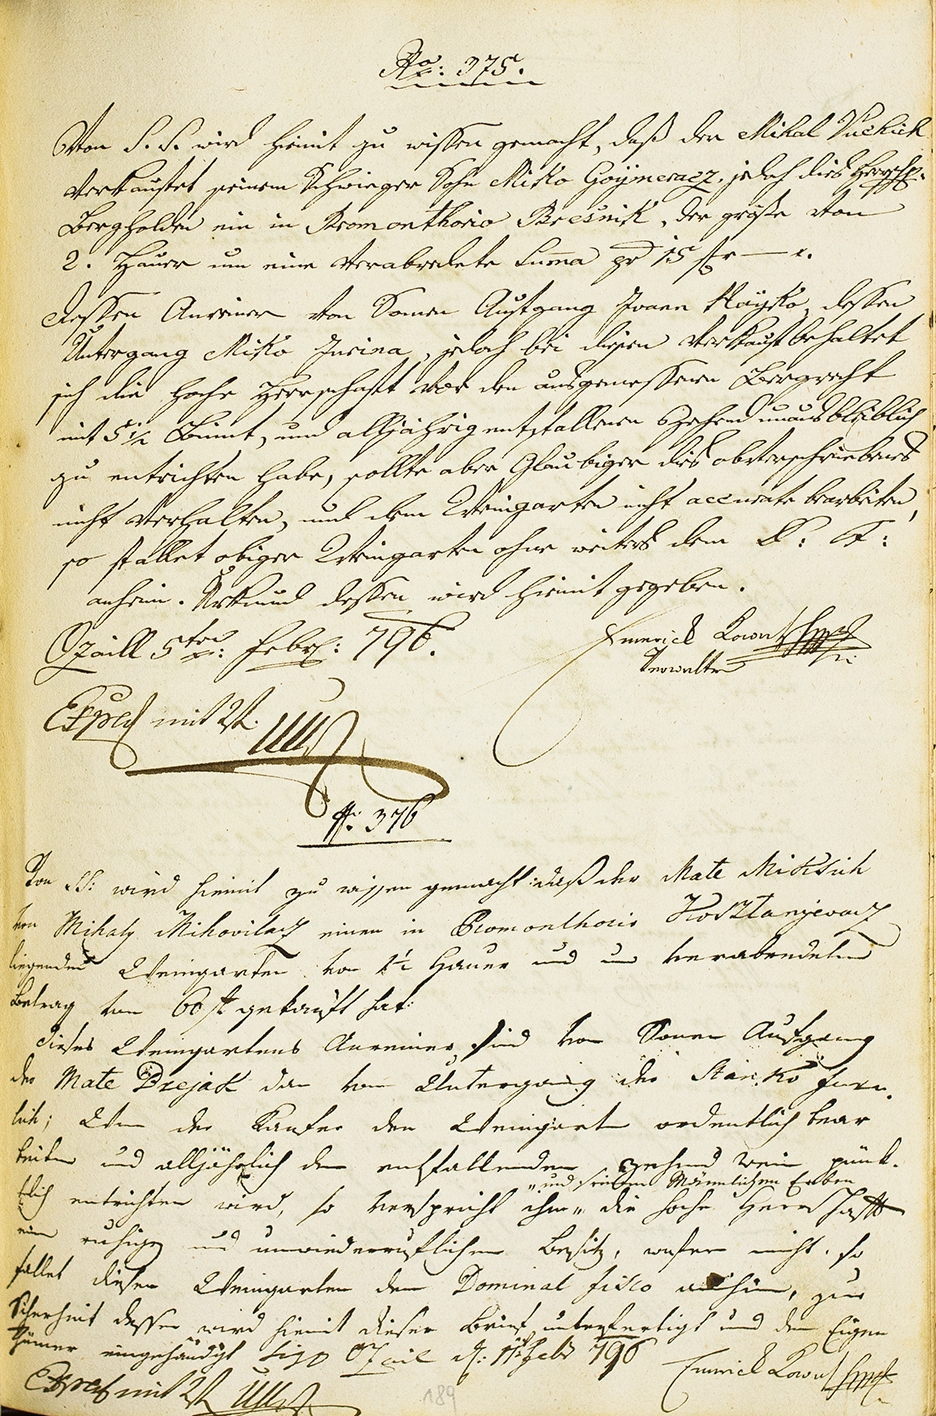 No: 375.
Von S. S. wird hiemit zu wissen gemacht, daß der Mikal Vuckich
verkaufet seinem Schwieger Sohn Misko Goymeracz, jedoch dies Herrschf.
Bergholden ein in Promonthorio Bresnik, der größe von
2. Hauer um eine verabredete Suma pr 15 fr —
dessen Anrainer von Sonen Aufgang Ivann Haysko, dessen
Untergang Misko Jurina, jedoch bei diesen Verkauf behaltet
sich die hohe Herrschaft vor den ausgemessenen Bergrecht
mit 5 1/2 Bimt, und alljährig entfallenen Zehend unausbleiblich
zu entrichten habe, sollte aber Glaubiger dies obbeschriebene
nicht verhalten, und dem Weingarten nicht accurate bearbeiten,
so fallet obiger Weingarten ohne weiters dem D: F:
anheim. Urkund dessen wird hiemit gegeben.
Ozaill 5ten Febr: 796.
Emerick Kowat
Verwalter
Exped mit 2
No: 376
Von SS: wird hiemit zu wissen gemacht daß der Mate Mikssich
von Mihaly Mihovilacz einen in Promonthorio Kosztanjevacz
liegenden Weingarten von 1/2 Hauer und um verabredeten
Betrag von 60 f gekauft hat:
Dieses Weingartens Anreiner sind von Sonen Aufgang
der Mate Bzejak dan vom Untergang der Stanko Jura
sich; Wen der Kaufer den Weingarten ordentlich bear
beiten und alljährlich den entfallenden zehend Wein pünk-
„und seinen Mänlichen Erben
tlich entrichten wird, so verspricht ihm„ die hohe Herrschafft
ein ruhigen und unwiederruflichen Besitz, wofern nicht, so
fallet dieser Weingarten dem Dominal fisco anheim, zur
Sicherheit dessen wird hiemit dieser Brief unterfertigt und dem Eigen
thümer eingehändigt Sigo Ozail d: 11t Febr 796
Emerick Kowat
Exped mit 2
189